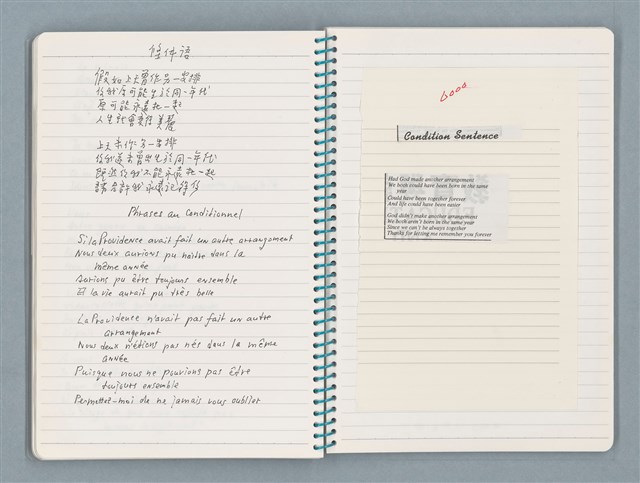 條件語
假如上天曾作另一安排
你我原可能生於同一年代
原可能永遠在一起
人生就會變得美麗
上天未作另一安排
你我並未曾出生於同一年代
既然你我不能永遠在一起
請容許我永遠記得你
Phrases au Conditionnel
Si la Providence avait fait un autre arrangement
Nous deux aurions pu naître dans la
même année
Aurions pu être toujours ensemble
Et la vie aurait pu très belle
La Providence n'avait pas fait un autre
arrangement
Nous deux n'étions pas nés dans la même
année
Puisque nous ne pouvions pas être
toujours ensemble
Permettez-moi de ne jamais vous oublier
6000
Condition Sentence
Had God made another arrangement
We both could have been born in the same
year
Could have been together forever
And life could have been easier
God didn't make another arrangement
We both aren't born in the same year
Since we can't be always together
Thanks for letting me remember you forever